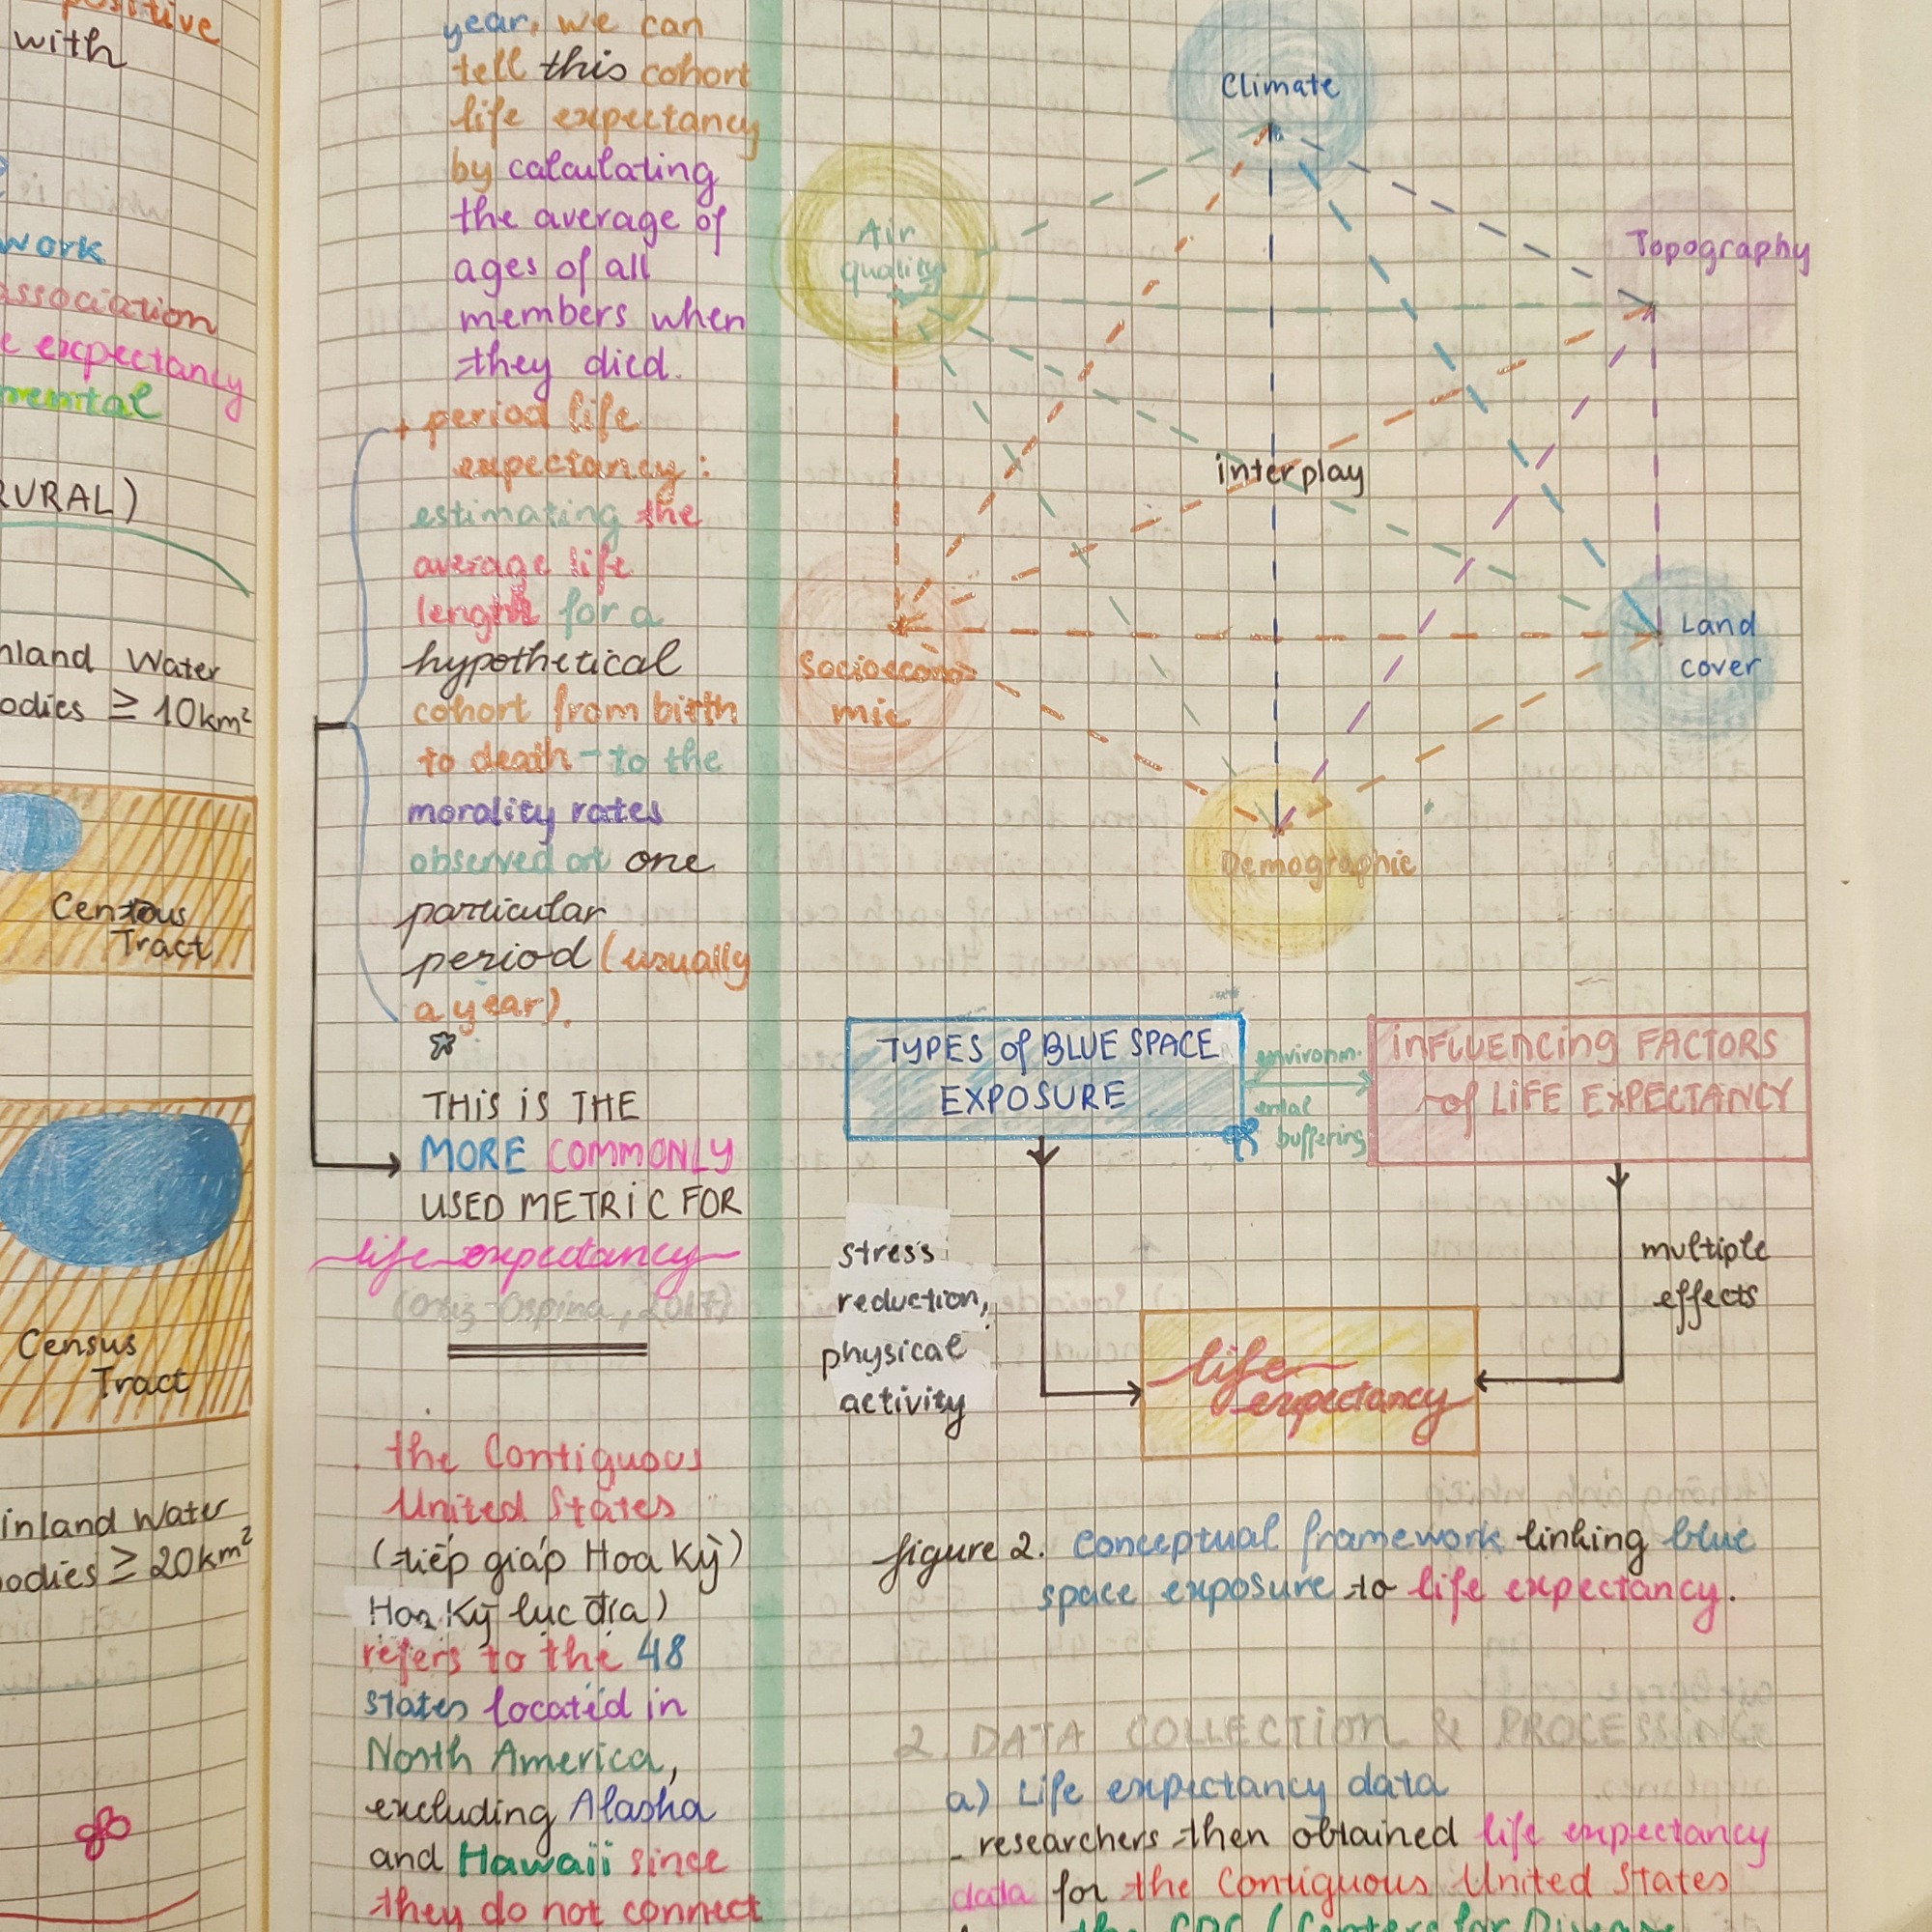 positive
with
work
association
expectancy
RURAL)
inland Water
bodies ≥ 10km²
Census
Tract
Census
Tract
inland Water
bodies ≥ 20km²
year, we can
tell this cohort
life expectancy
by calculating
the average of
ages of all
members when
they died.
+ period life
expectancy:
estimating the
average life
length for a
hypothetical
cohort from birth
to death - to the
morality rates
observed at one
particular
period (usually
a year).
THIS IS THE
MORE COMMONLY
USED METRIC FOR
life expectancy
(Ortiz-Ospina, 2017)
the Contiguous
United States
(tiếp giáp Hoa Kỳ)
Hoa Kỳ lục địa)
refers to the 48
states located in
North America,
excluding Alaska
and Hawaii since
they do not connect
Climate
Air
quality
Topography
interplay
Socioecono
mic
Land
cover
Demographic
TYPES of BLUE SPACE
EXPOSURE
environm-
ental
buffering
INFLUENCING FACTORS
of LIFE EXPECTANCY
stress
reduction,
physical
activity
multiple
effects
life
expectancy
figure 2. Conceptual framework linking blue
space exposure to life expectancy.
2. DATA COLLECTION & PROCESSING
a) Life expectancy data
- researchers then obtained life expectancy
data for the Contiguous United States
the CDC (Centers for Disease